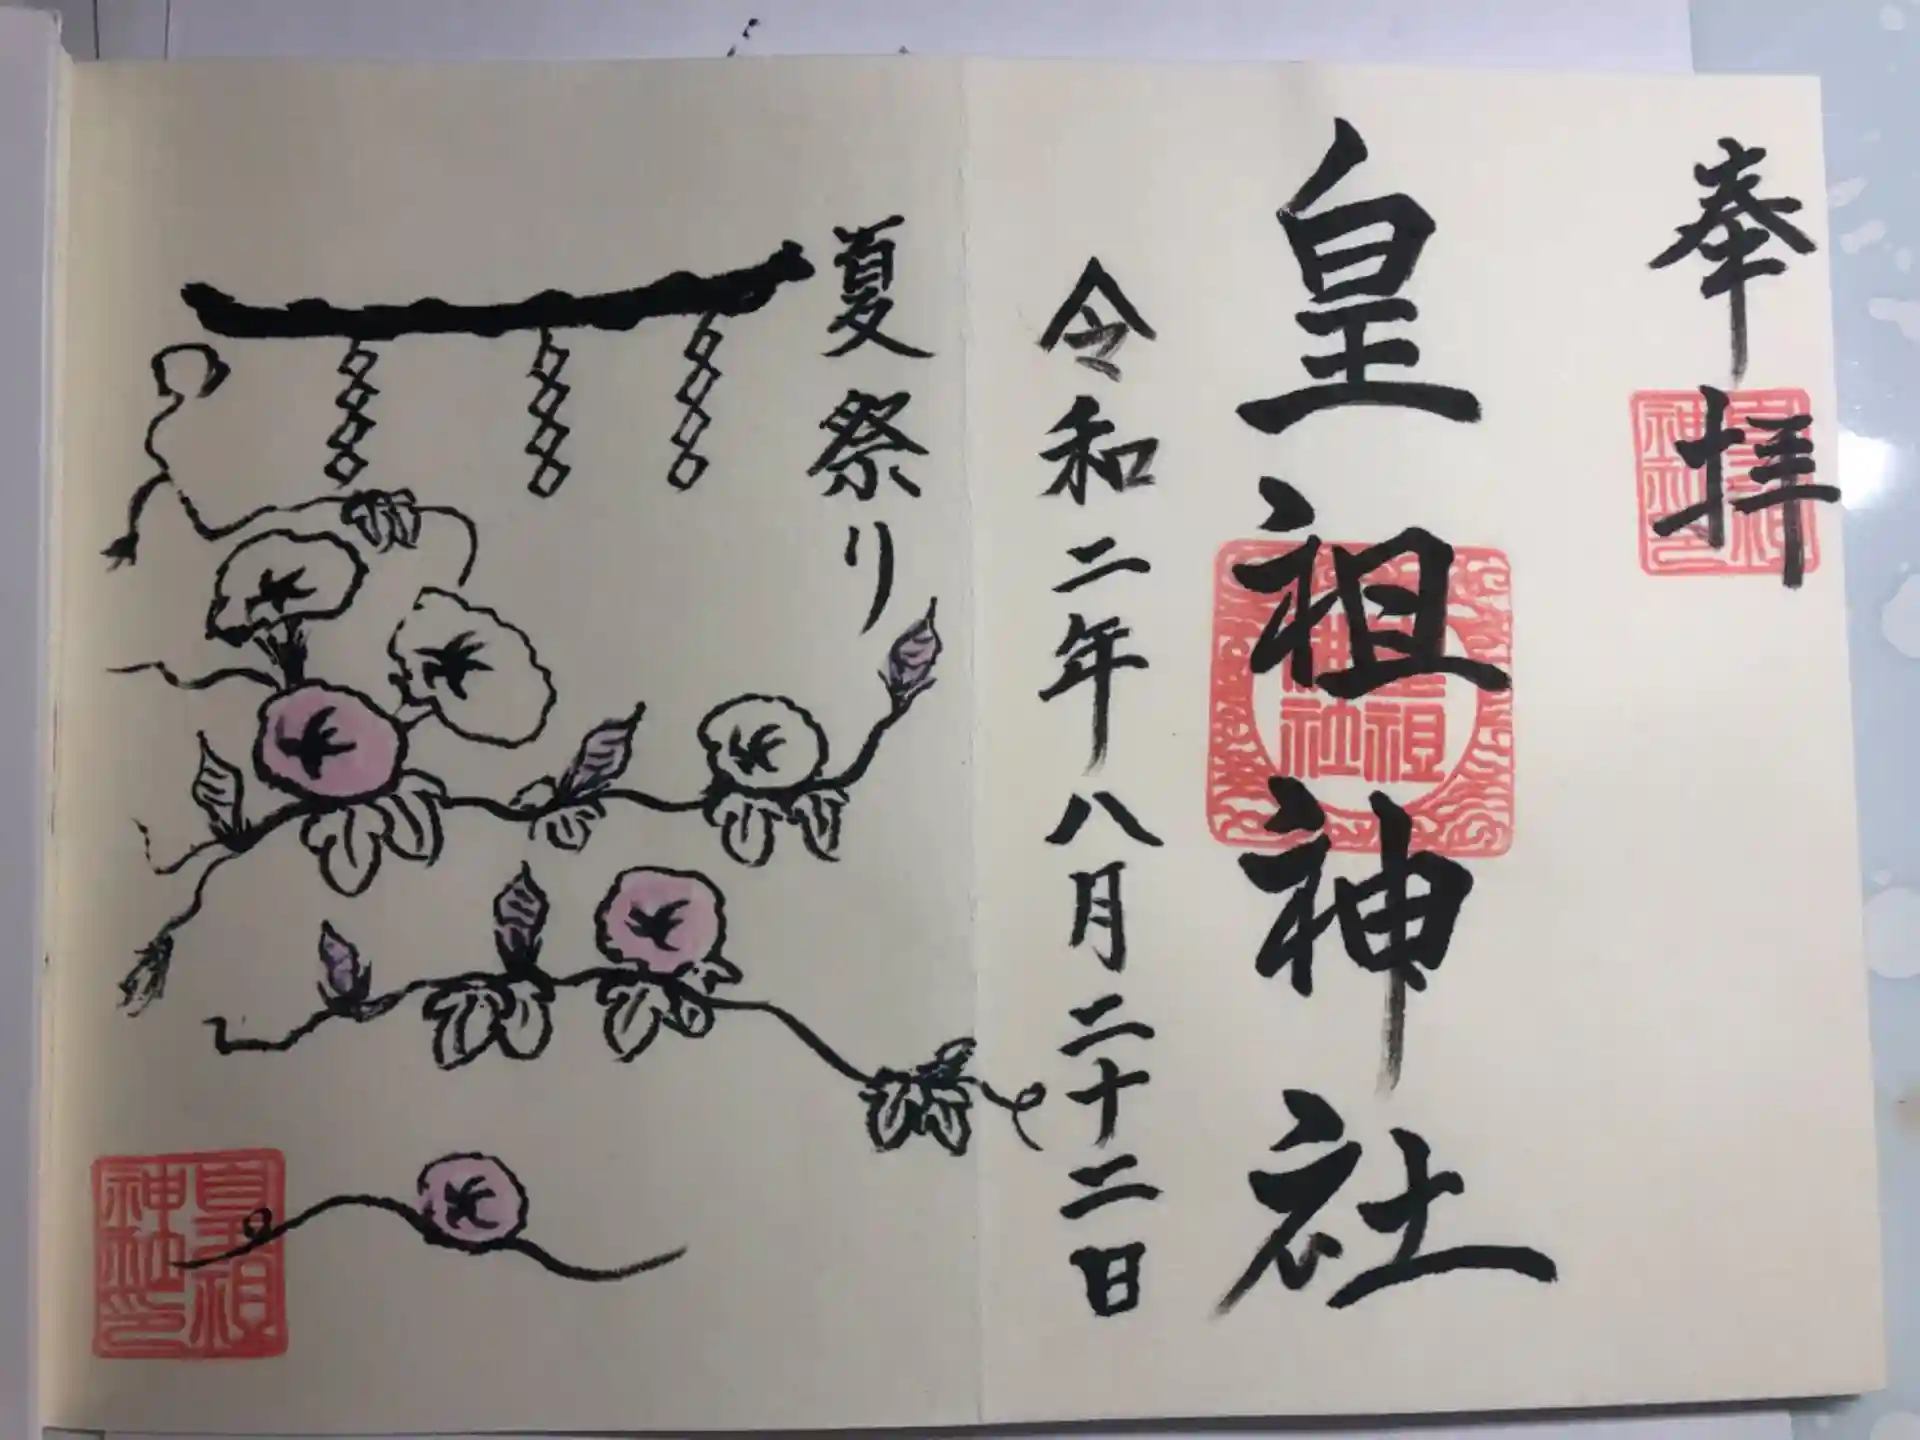 奉拝
皇祖神社
令和二年八月二十二日
夏祭り
皇祖
神社
皇祖
神社印
皇祖
神社印